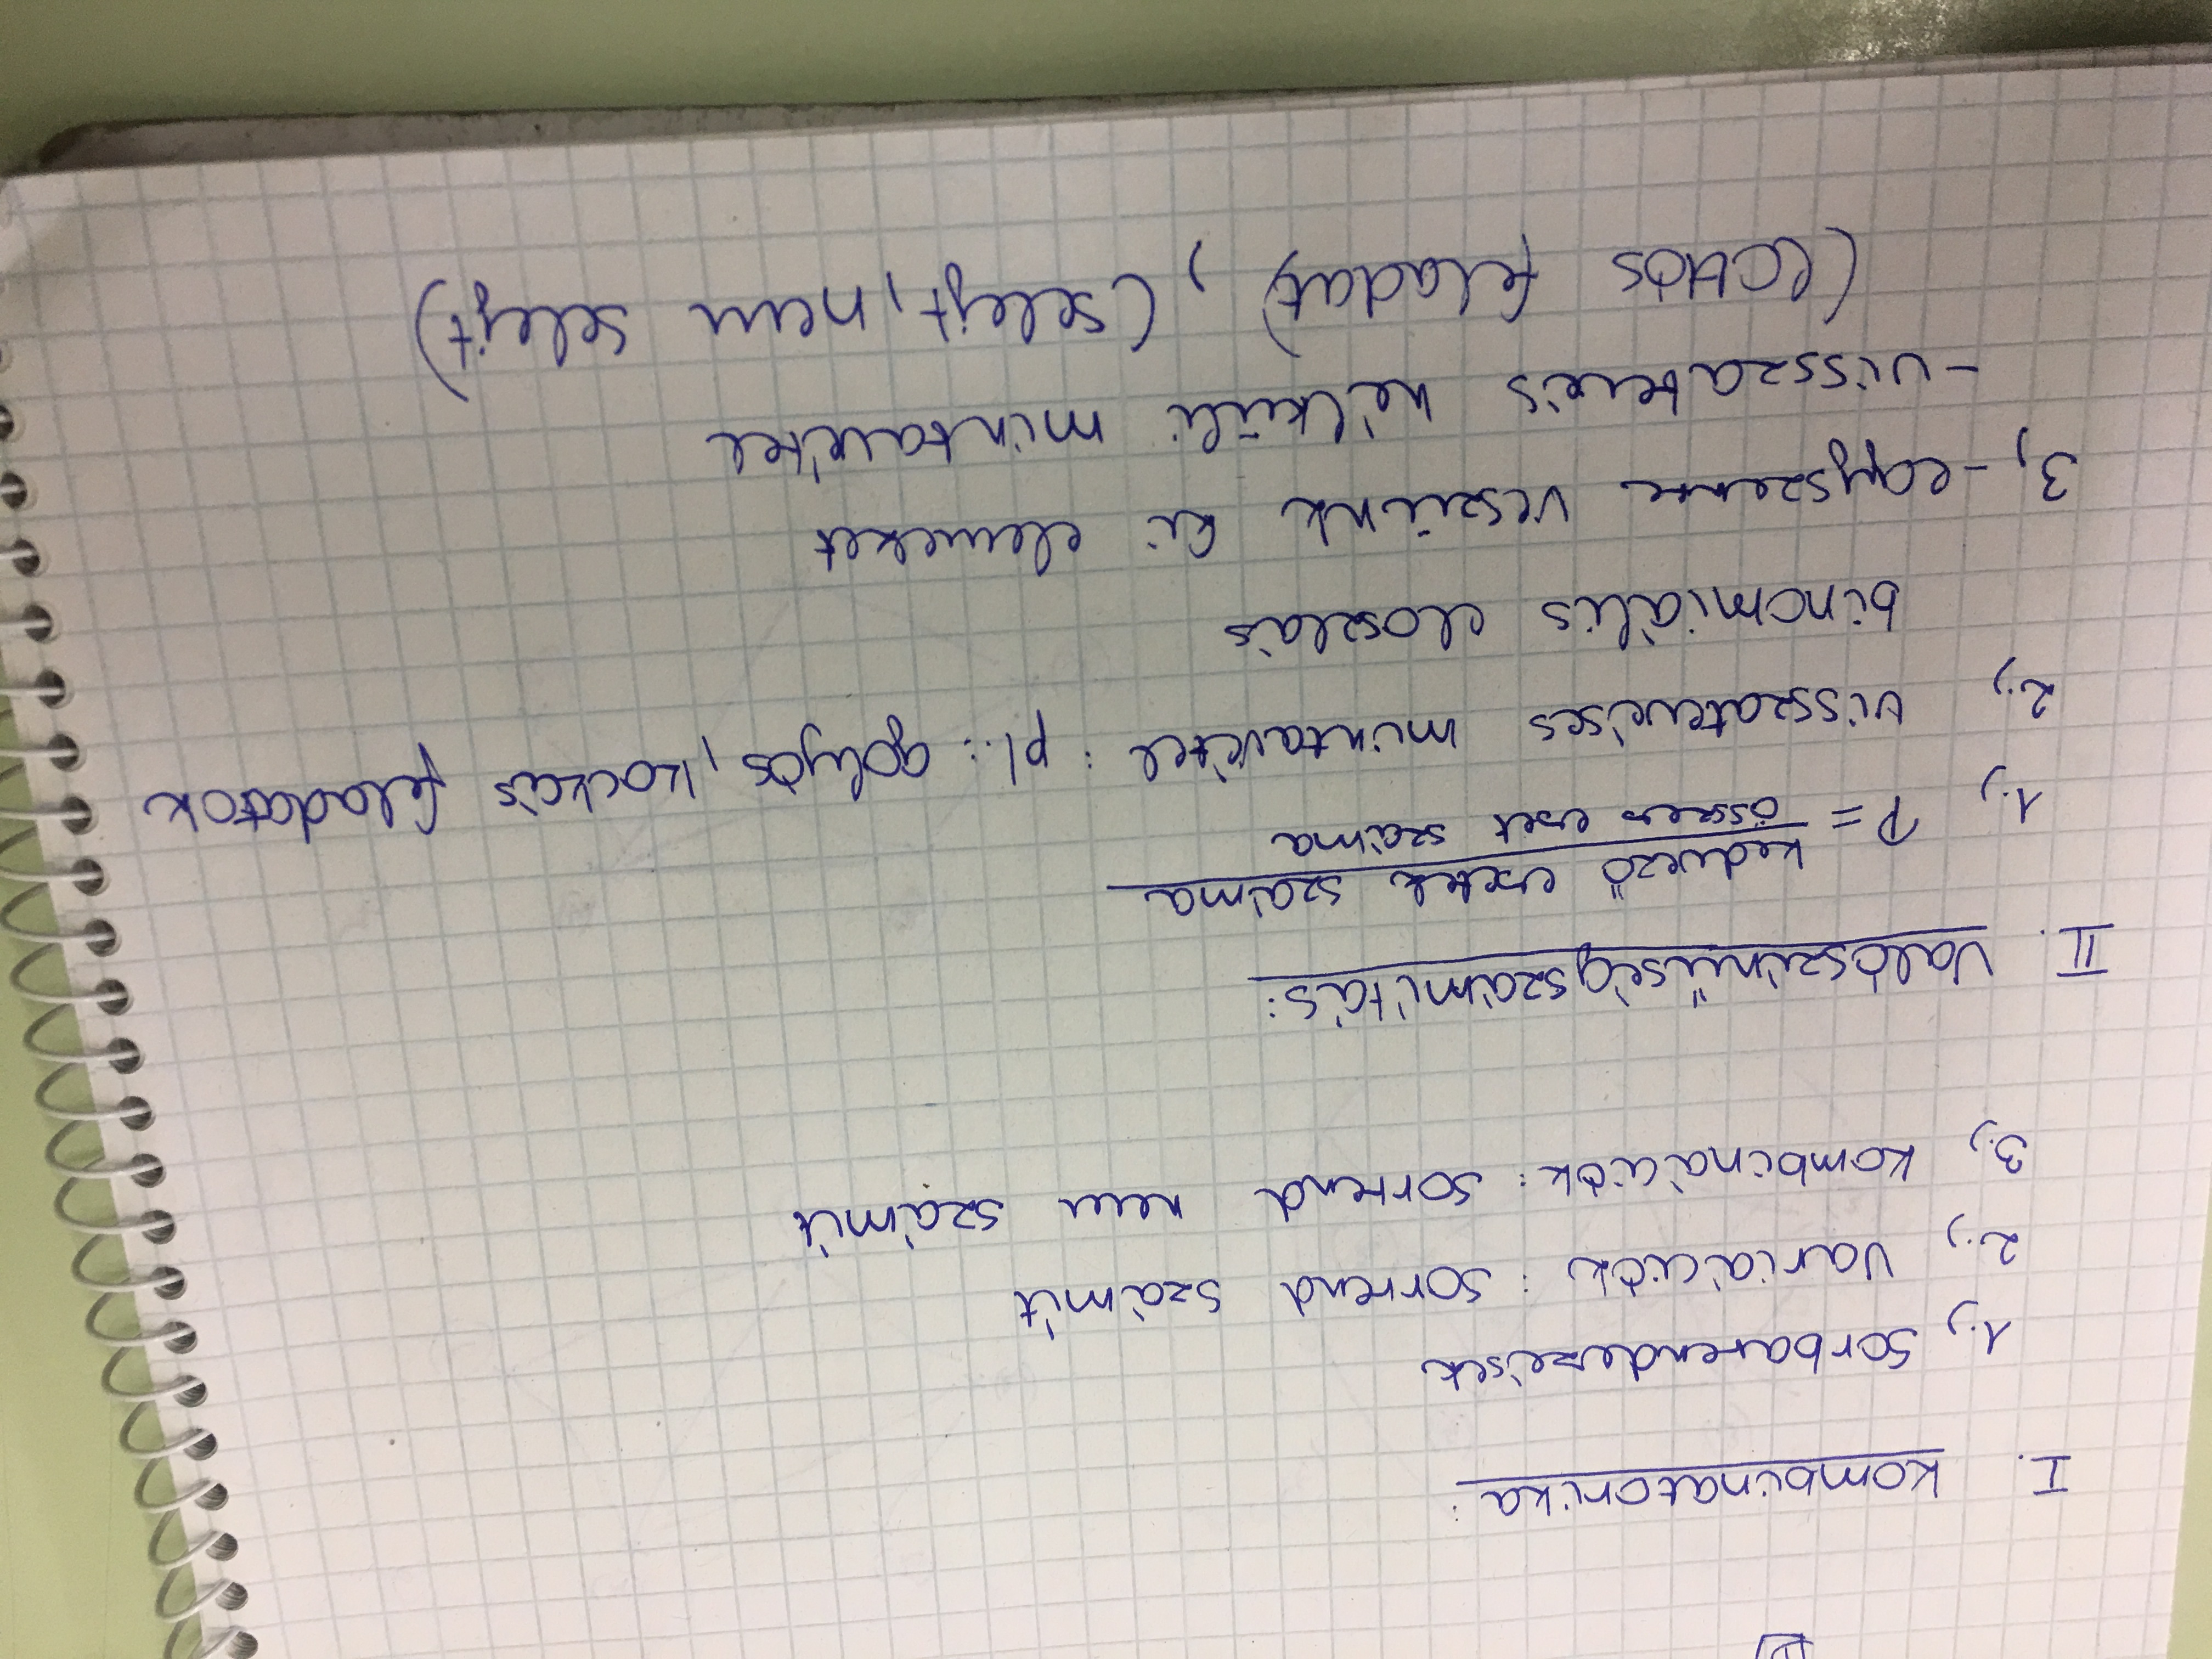 I. Kombinatorika:
1.) Sorbarendezések
2.) Variációk: sorrend számít
3.) Kombinációk: sorrend nem számít
II. Valószínűségszámítás:
kedvező esetek száma
1.) P = összes eset száma
2.) visszatevéses mintavétel: pl.: golyós, kockás feladatok
binomiális eloszlás
3.) - egyszerre veszünk ki elemeket
- visszatevés nélküli mintavétel
(lottós feladat), (selejt, nem selejt)